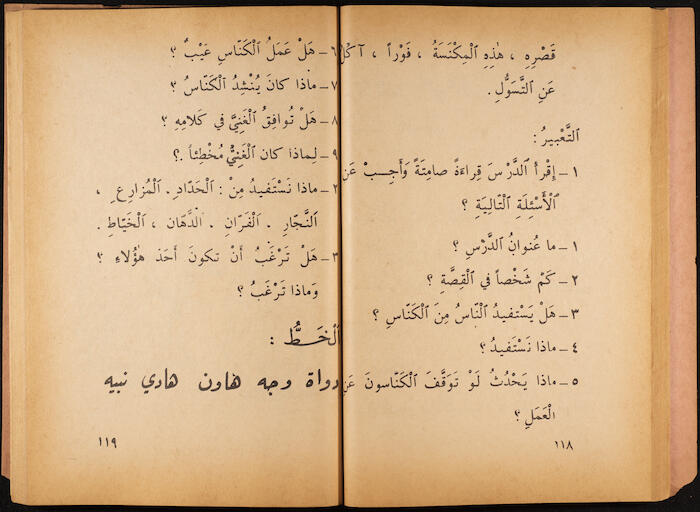 قَصْرِهِ ، هٰذِهِ ٱلْمِكْنَسَةُ ، فَوْراً ، آكُل
عَنِ ٱلتَّسَوُّلِ .
ٱلتَّعْبِيرُ :
١ - إِقْرَأْ ٱلدَّرْسَ قِرَاءَةً صامِتَةً وَأَجِبْ عَن
ٱلْأَسْئِلَةِ ٱلْتَّالِيَةِ ؟
١ - ما عُنْوانُ ٱلدَّرْسِ ؟
٢ - كَمْ شَخْصاً في ٱلْقِصَّةِ ؟
٣ - هَلْ يَسْتَفيدُ ٱلْنَّاسُ مِنَ ٱلْكَنّاسِ ؟
٤ - ماذا نَسْتَفيدُ ؟
٥ - ماذا يَحْدُثُ لَوْ تَوَقَّفَ ٱلْكَنّاسونَ عَنِ
ٱلْعَمَلِ ؟
١١٨
٦ - هَلْ عَمَلُ ٱلْكَنّاسِ عَيْبٌ ؟
٧ - ماذا كانَ يُنْشِدُ ٱلْكَنّاسُ ؟
٨ - هَلْ تُوافِقُ ٱلْغَنِيَّ في كَلامِهِ ؟
٩ - لِماذا كان ٱلْغَنِيُّ مُخْطِئاً .؟
٢ - ماذا نَسْتَفيدُ مِنْ : ٱلْحَدّادِ . ٱلْمُزارِعِ ،
ٱلنَّجّارِ . ٱلْفَرّانِ . ٱلدَّهّانِ ، ٱلْخَيّاطِ .
٣ - هَلْ تَرْغَبُ أَنْ تكونَ أَحَدَ هٰؤُلاءِ ؟
وَماذا تَرْغَبُ ؟
ٱلْخَطُّ :
دواة وجه هاون هادي نبيه
١١٩